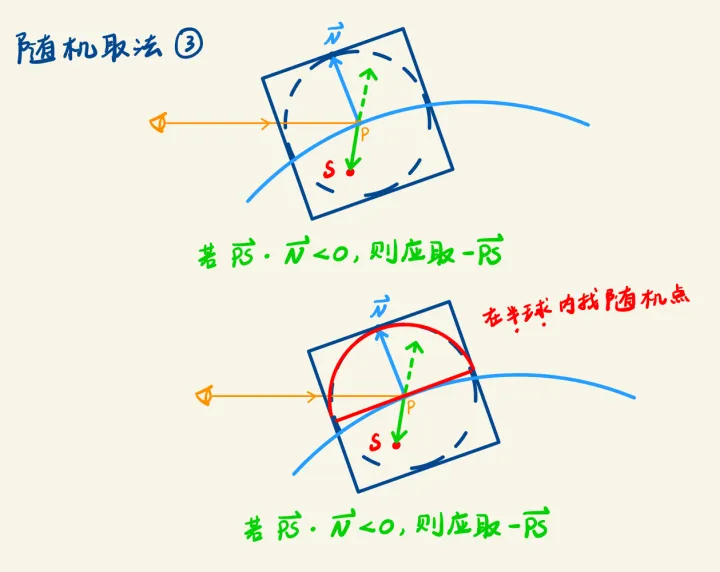 随机取法③
N
P
S
若 PS · N < 0, 则应取 -PS
在半球内找随机点
N
P
S
若 PS · N < 0, 则应取 -PS